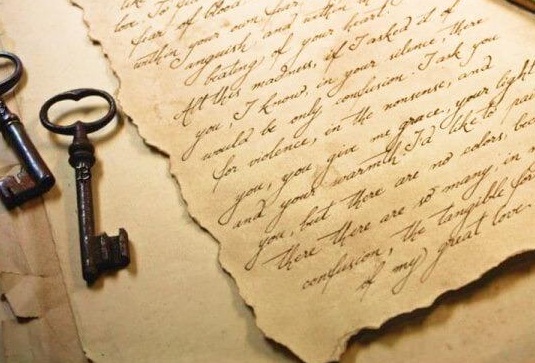 love. To give
fear, of blood
within your own fear,
anguish, and within
beating of your heart.
All this madness, if I asked it of
you, I know, in your silence there
would be only confusion. I ask you
for violence, in the nonsense, and
you, you give me grace, your light
and your warmth. I'd like to
you, but there are no colors,
there there are so many, in
confusion, the tangible
of my great love.